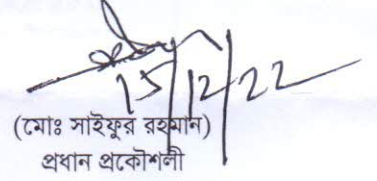 15/12/22
(মোঃ সাইফুর রহমান)
প্রধান প্রকৌশলী